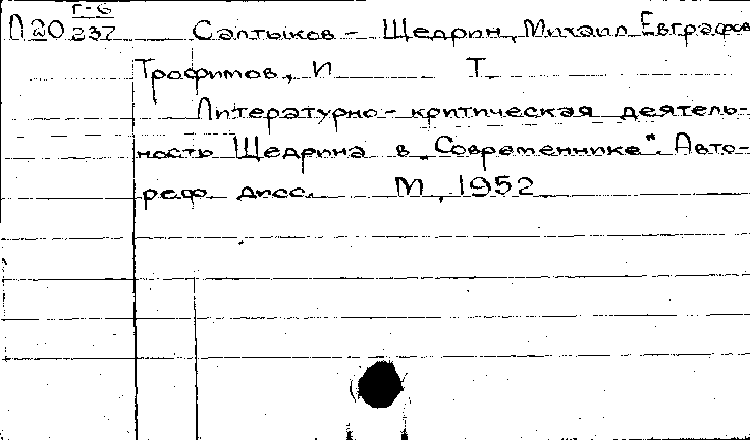 Г-6
П20 237 Салтыков - Щедрин, Михаил Евграфов
Трофимов, И Т.
Литературно-критическая деятель-
ность Щедрина в „Современнике“. Авто-
реф. дисс. М, 1952